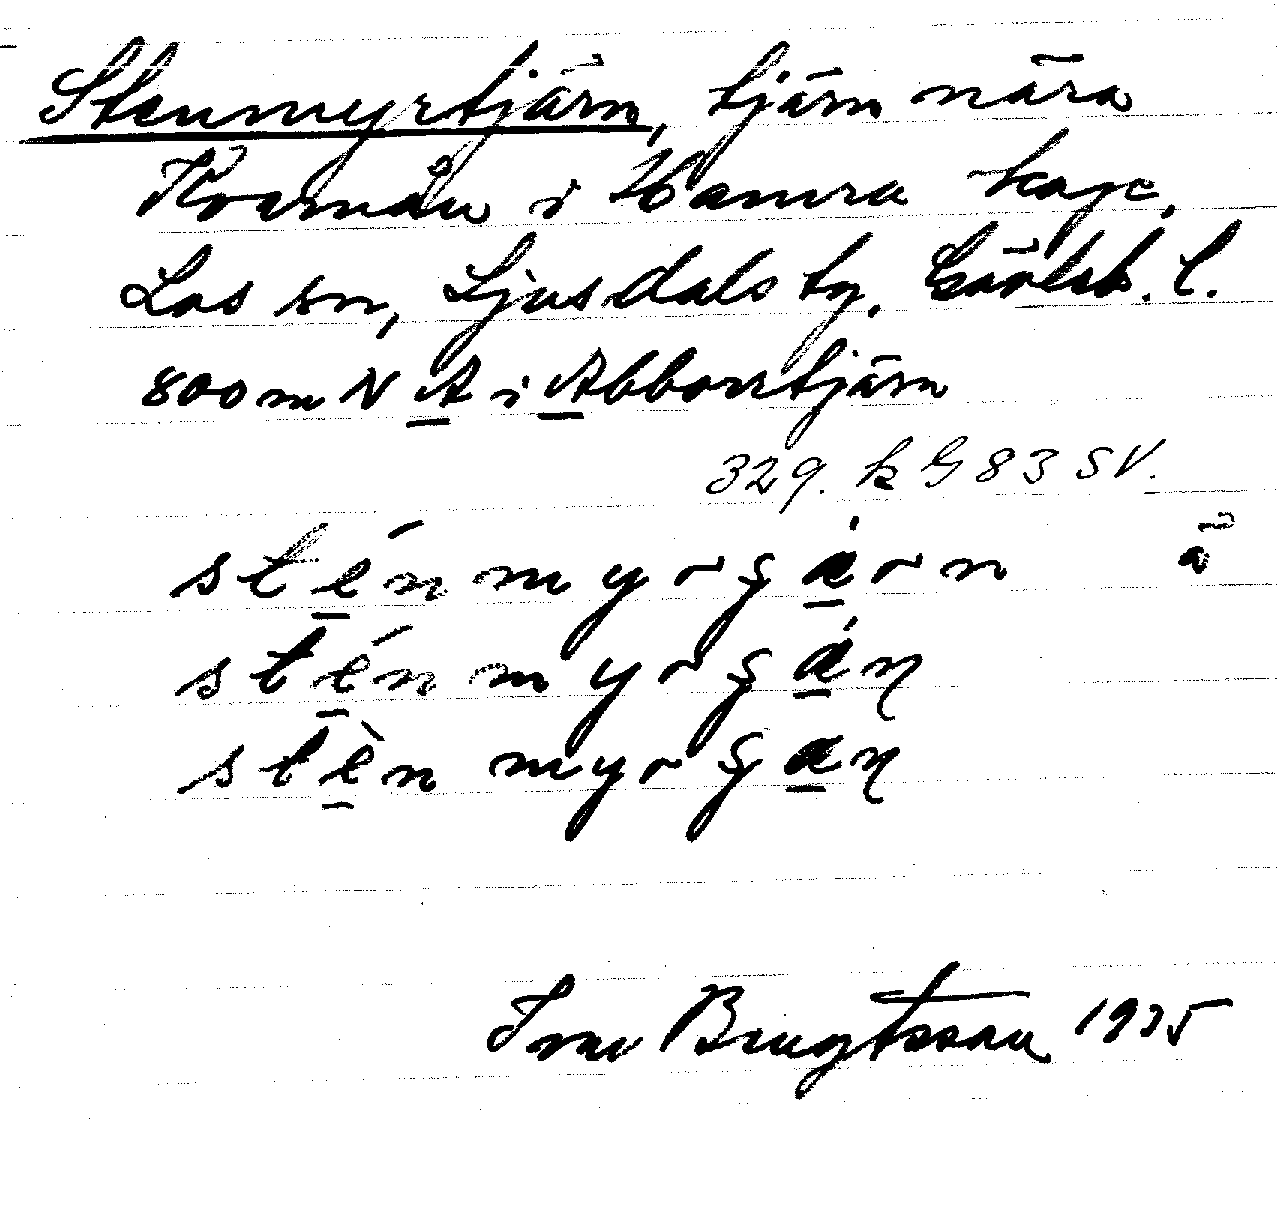 Stenmyrtjärn, tjärn nära
Kvarnån i Hamra kap.
Los sn, Ljusdals tg. Gävleb. l.
800 m N A i Abborrtjärn
329. k G 83 SV.
sténmyrçȧrn ä
sténmyrçȧɳ
stènmyrçaɳ
Ivar Bengtsson 1935